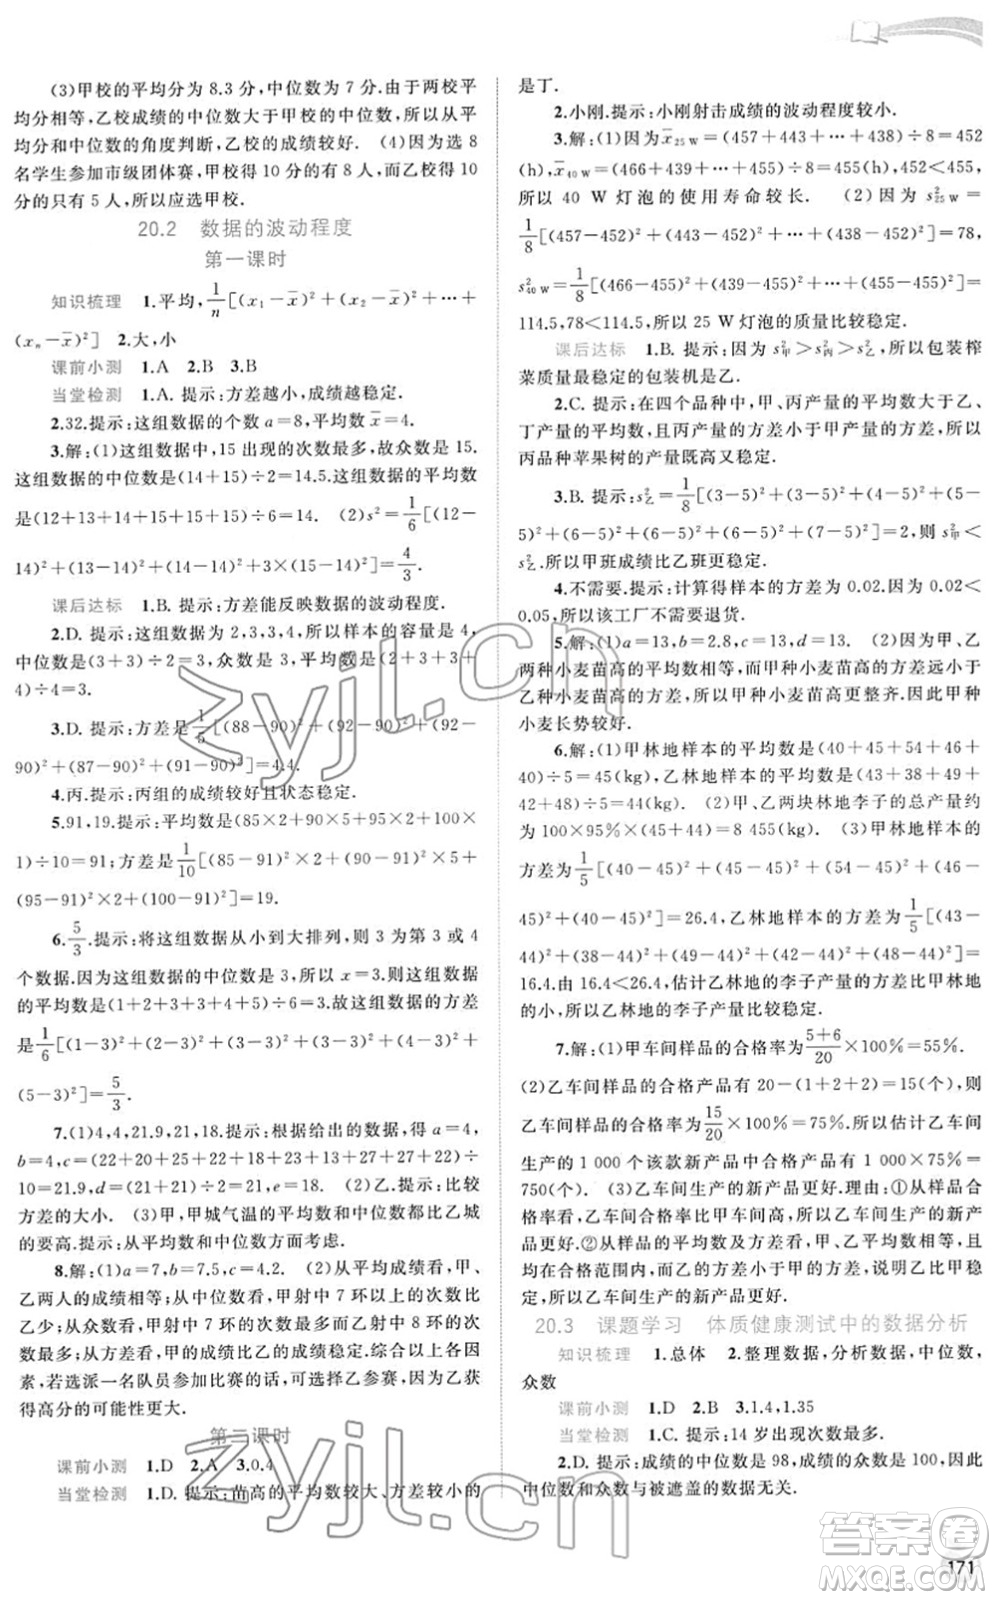 (3)甲校的平均分为8.3分,中位数为7分.由于两校平
均分相等,乙校成绩的中位数大于甲校的中位数,所以从平
均分和中位数的角度判断,乙校的成绩较好. (4)因为选8
名学生参加市级团体赛,甲校得10分的有8人,而乙校得10
分的只有5人,所以应选甲校.
20.2 数据的波动程度
第一课时
知识梳理 1.平均,1/n[(x₁-x̄)²+(x₂-x̄)²+…+
(xₙ-x̄)²] 2.大,小
课前小测 1.A 2.B 3.B
当堂检测 1.A. 提示:方差越小,成绩越稳定.
2.32.提示:这组数据的个数a=8,平均数x̄=4.
3.解:(1)这组数据中,15出现的次数最多,故众数是15.
这组数据的中位数是(14+15)÷2=14.5.这组数据的平均数
是(12+13+14+15+15+15)÷6=14. (2)s²=1/6[(12-
14)²+(13-14)²+(14-14)²+3×(15-14)²]=4/3.
课后达标 1.B. 提示:方差能反映数据的波动程度.
2.D. 提示:这组数据为2,3,3,4,所以样本的容量是4,
中位数是(3+3)÷2=3,众数是3,平均数是(2+3+3+
4)÷4=3.
3.D. 提示:方差是1/5[(88-90)²+(92-90)²+(92-
90)²+(87-90)²+(91-90)²]=4.4.
4.丙.提示:丙组的成绩较好且状态稳定.
5.91,19.提示:平均数是(85×2+90×5+95×2+100×
1)÷10=91;方差是1/10[(85-91)²×2+(90-91)²×5+
(95-91)²×2+(100-91)²]=19.
6.5/3.提示:将这组数据从小到大排列,则3为第3或4
个数据.因为这组数据的中位数是3,所以x=3.则这组数据
的平均数是(1+2+3+3+4+5)÷6=3.故这组数据的方差
是1/6[(1-3)²+(2-3)²+(3-3)²+(3-3)²+(4-3)²+
(5-3)²]=5/3.
7.(1)4,4,21.9,21,18.提示:根据给出的数据,得a=4,
b=4,c=(22+20+25+22+18+23+13+27+27+22)÷
10=21.9,d=(21+21)÷2=21,e=18. (2)乙.提示:比较
方差的大小. (3)甲,甲城气温的平均数和中位数都比乙城
的高.提示:从平均数和中位数方面考虑.
8.解:(1)a=7,b=7.5,c=4.2. (2)从平均成绩看,甲、
乙两人的成绩相等;从中位数看,甲射中7环的次数比
乙少;从众数看,甲射中7环的次数最多,乙射中8环的次数
最多;从方差看,甲的成绩比乙的成绩稳定.综合以上各因
素,若选派一名队员参加比赛的话,可选择乙参赛,因为乙获
得高分的可能性更大.
第二课时
课前小测 1.D 2.A 3.0.4
当堂检测 1.D. 提示:苗高的平均数较大、方差较小的
是丁.
2.小刚.提示:小刚射击成绩的波动程度较小.
3.解:(1)因为x̄₂₅W=(457+443+…+438)÷8=452
(h),x̄₄₀W=(466+439+…+455)÷8=455(h),452<455,
所以40 W灯泡的使用寿命较长. (2)因为s²₂₅W=
1/8[(457-452)²+(443-452)²+…+(438-452)²]=78,
s²₄₀W=1/8[(466-455)²+(439-455)²+…+(455-455)²]=
114.5,78<114.5,所以25 W灯泡的质量比较稳定.
课后达标 1.B. 提示:因为s²甲>s²丙>s²乙,所以包装榨
菜质量最稳定的包装机是乙.
2.C. 提示:在四个品种中,甲、丙产量的平均数大于乙、
丁产量的平均数,且丙产量的方差小于甲产量的方差,所以
丙品种苹果树的产量既高又稳定.
3.B. 提示:s²乙=1/8[(3-5)²+(3-5)²+(4-5)²+(5-
5)²+(6-5)²+(6-5)²+(6-5)²+(7-5)²]=2,则s²甲<
s²乙.所以甲班成绩比乙班更稳定.
4.不需要.提示:计算得样本的方差为0.02.因为0.02<
0.05,所以该工厂不需要退货.
5.解:(1)a=13,b=2.8,c=13,d=13. (2)因为甲、乙
两种小麦苗高的平均数相等,而甲种小麦苗高的方差远小于
乙种小麦苗高的方差,所以甲种小麦苗高更整齐.因此甲种
小麦长势较好.
6.解:(1)甲林地样本的平均数是(40+45+54+46+
40)÷5=45(kg),乙林地样本的平均数是(43+38+49+46+
44)÷5=44(kg). (2)甲、乙两块林地李子的总产量约
为100×95%×(45+44)=8 455(kg). (3)甲林地样本的
方差为1/5[(40-45)²+(45-45)²+(54-45)²+(46-
45)²+(40-45)²]=26.4,乙林地样本的方差为1/5[(43-
44)²+(38-44)²+(49-44)²+(46-44)²+(44-44)²]=
16.4.由16.4<26.4,估计乙林地的李子产量的方差比甲林地
的小,所以乙林地的李子产量比较稳定.
7.解:(1)甲车间样品的合格率为(5+6)/20×100%=55%.
(2)乙车间样品的合格产品有20-(1+2+2)=15(个),则
乙车间样品的合格率为15/20×100%=75%.所以估计乙车间
生产的1 000个该款新产品中合格产品有1 000×75%=
750(个). (3)乙车间生产的新产品更好.理由:①从样品合
格率看,乙车间合格率比甲车间高,所以乙车间生产的新产
品更好.②从样品的方差看,甲、乙车间样品的平均数均在合
格范围内,而乙的方差小于甲的方差,这说明乙产品比甲稳
定,所以乙车间生产的新产品更好.
20.3 课题学习 体质健康测试中的数据分析
知识梳理 1.总体 2.整理数据,分析数据,中位数,
众数
课前小测 1.D 2.B 3.1.4,1.35
当堂检测 1.C. 提示:14岁出现次数最多.
2.D. 提示:成绩的中位数是98,成绩的众数是100,因此
中位数和众数与被遮盖的数据无关.
171
zyjl.cn
zyjl.cn
答案卷
MXQE.COM